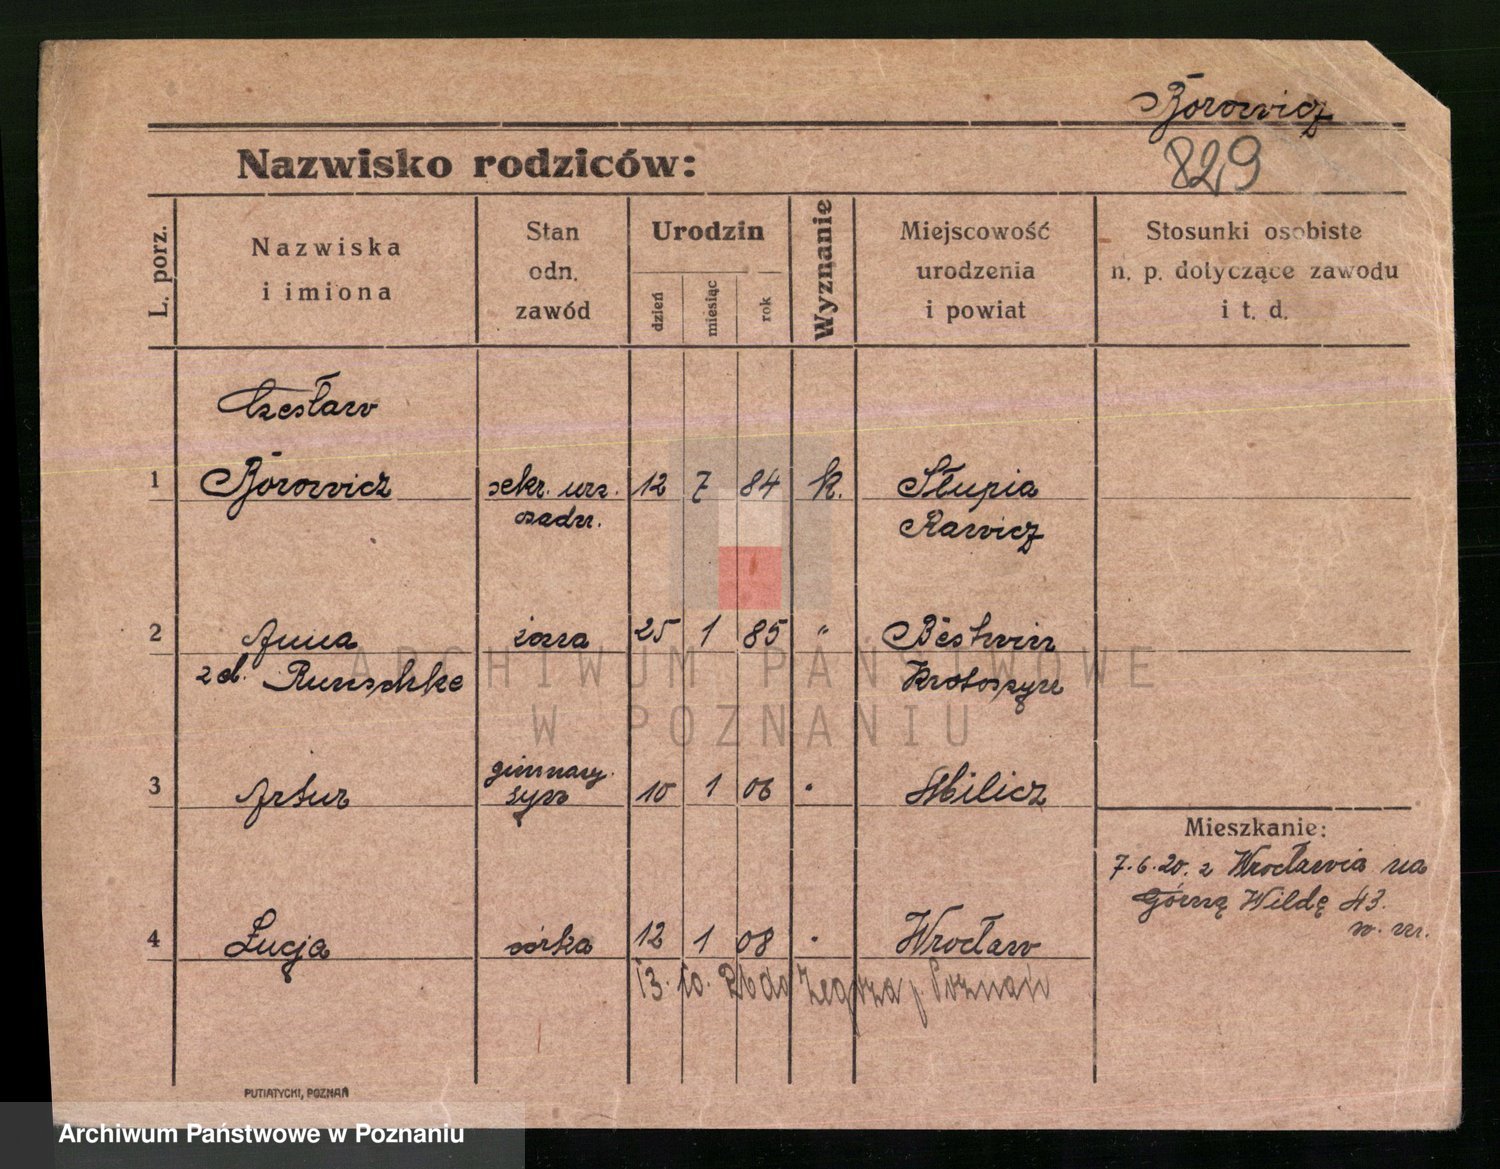 Borowicz
829
Nazwisko rodziców:
L. porz.
Nazwiska
i imiona
Stan
odn.
zawód
Urodzin
dzień
miesiąc
rok
Wyznanie
Miejscowość
urodzenia
i powiat
Stosunki osobiste
n. p. dotyczące zawodu
i t. d.
Czesław
1 Borowicz sekr. urz. 12 7 84 k. Słupia
sadw. Rawicz
2 Anna żona 25 1 85 " Beshvin
z d. Runschke Krotoszyn
ARCHIWUM PAŃSTWOWE
W POZNANIU
gimnazy.
3 Artur 10 1 06 Milicz
Mieszkanie:
7.6.20. z Wrocławia na
Górną Wildę 43.
4 Łucja córka 12 1 08 Wrocław
13. 10. do Zegrza p. Poznań
PUTIATYCKI, POZNAŃ
Archiwum Państwowe w Poznaniu